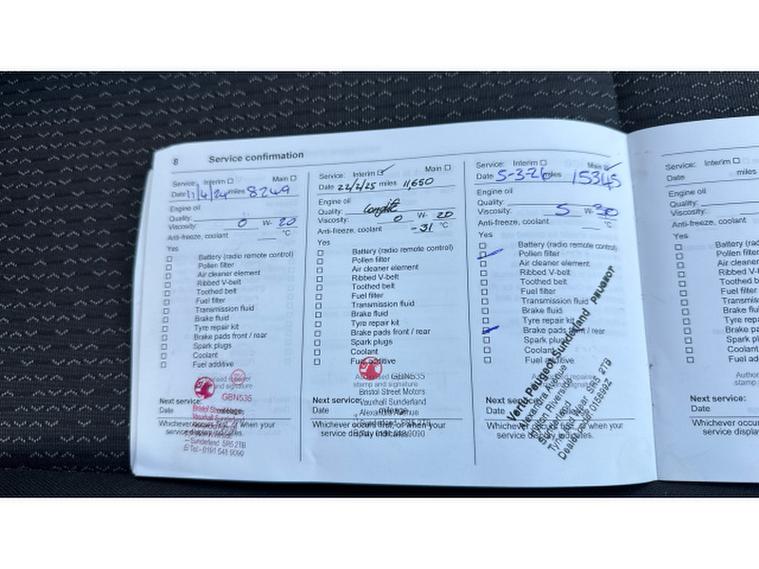 8 Service confirmation
Service: Interim Main
Date 11/4/24 miles 8249
Engine oil
Quality:
Viscosity: 0 W- 20
Anti-freeze, coolant °C
Yes
Battery (radio remote control)
Pollen filter
Air cleaner element
Ribbed V-belt
Toothed belt
Fuel filter
Transmission fluid
Brake fluid
Tyre repair kit
Brake pads front / rear
Spark plugs
Coolant
Fuel additive
stamp and signature
GBN535
Bristol Street Motors
Vauxhall Sunderland
Sunderland SR5 2TB
Tel - 0191 548 9090
Next service:
Date mileage
Whichever occurs first, or when your
service display indicates.
Service: Interim Main
Date 22/2/25 miles 11,650
Engine oil
Quality:
Viscosity: 0 W- 20
Anti-freeze, coolant -31 °C
Yes
Battery (radio remote control)
Pollen filter
Air cleaner element
Ribbed V-belt
Toothed belt
Fuel filter
Transmission fluid
Brake fluid
Tyre repair kit
Brake pads front / rear
Spark plugs
Coolant
Fuel additive
Authorised
stamp and signature
GBN535
Bristol Street Motors
Vauxhall Sunderland
Alexandra Avenue
Sunderland SR5 2TB
Next service:
Date mileage
Whichever occurs first, or when your
service display indicates.
Service: Interim Main
Date 5-3-26 miles 15345
Engine oil
Quality:
Viscosity: 5 W- 30
Anti-freeze, coolant °C
Yes
Battery (radio remote control)
Pollen filter
Air cleaner element
Ribbed V-belt
Toothed belt
Fuel filter
Transmission fluid
Brake fluid
Tyre repair kit
Brake pads front / rear
Spark plugs
Coolant
Fuel additive
Vertu Peugeot Sunderland PEUGEOT
Alexandra Avenue
Riverside
SR5 2TB
Next service:
Date
Whichever occurs first, or when your
service display indicates.
Service: Interim
Date miles
Engine oil
Quality:
Viscosity:
Anti-freeze, coolant
Yes
Battery (rad
Pollen filter
Air cleaner
Ribbed V-be
Toothed bel
Fuel filter
Transmissio
Brake fluid
Tyre repair
Brake pads
Spark plugs
Coolant
Fuel ad
Author
stamp
Next service:
Date
Whichever occur
service display